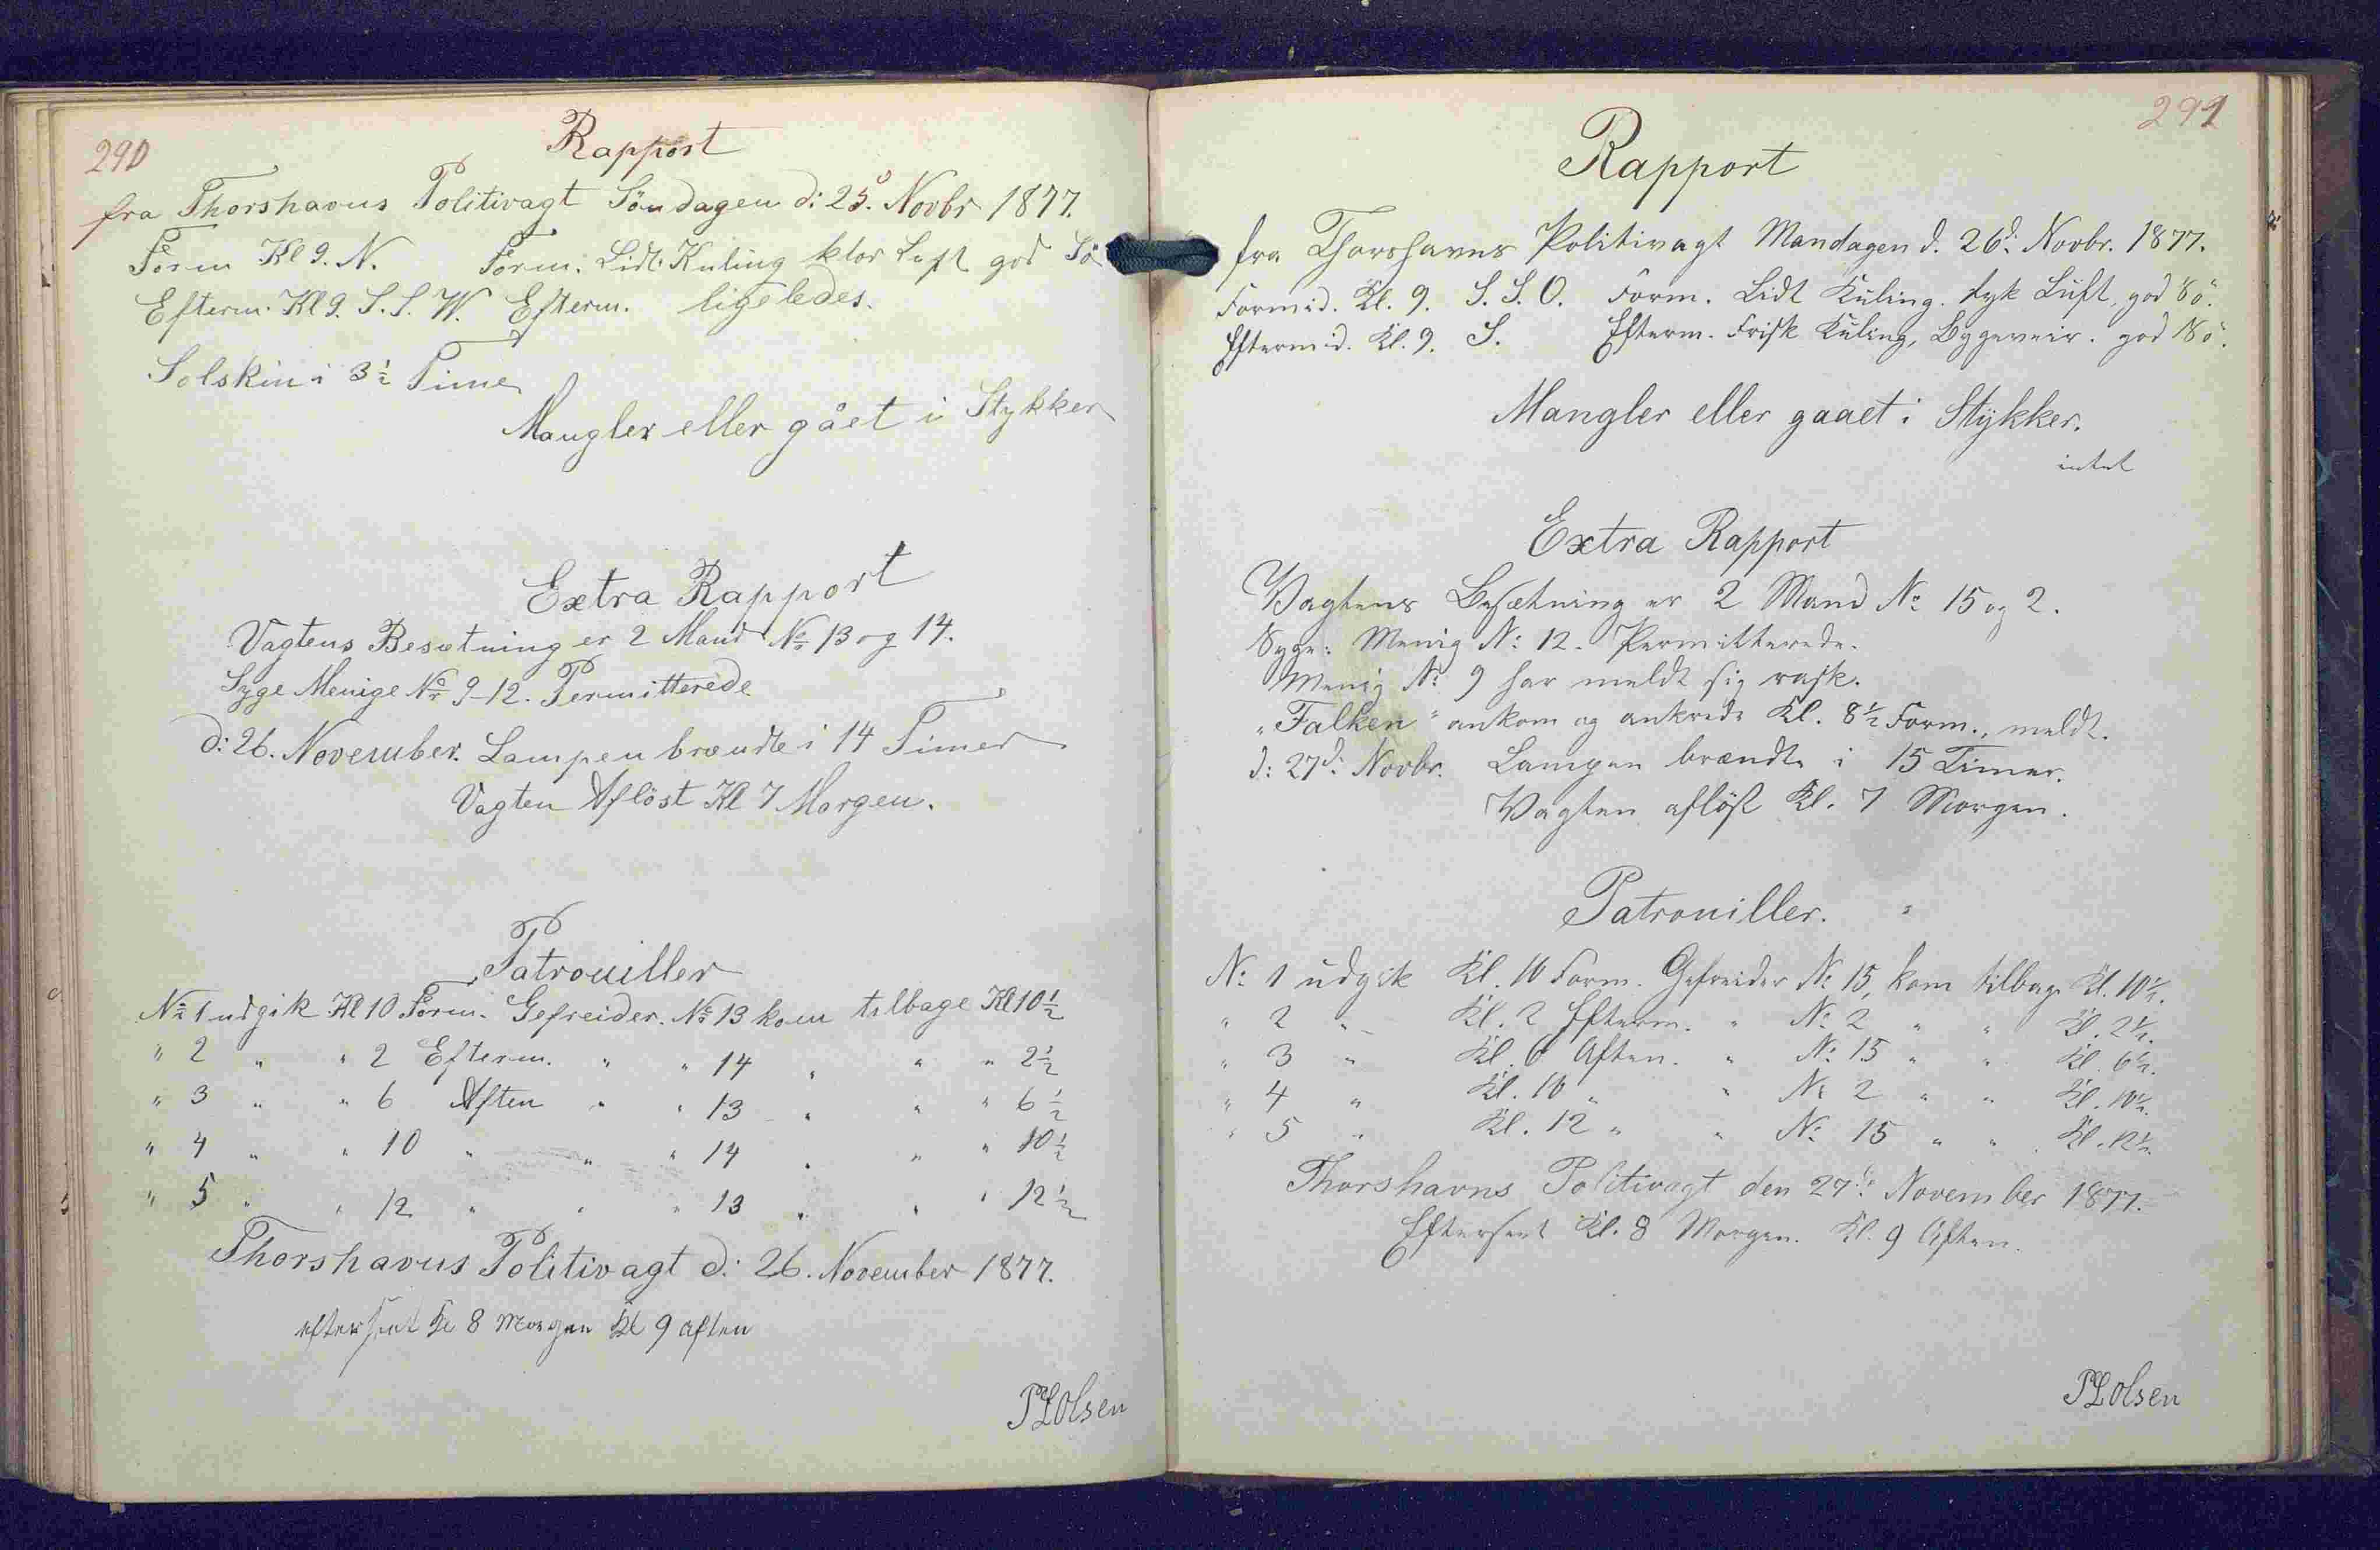 290
Rapport
fra Thorshavns Politivagt Söndagen d: 25. Novbr 1877.
Form Kl 9. N. Form. Lidt Kuling klar Luft god Sö
Efterm. Kl 9. S. S. W. Efterm. ligeledes.
Solskin i 3½ Time
Mangler eller gået i Stykker
Extra Rapport
Vagtens Besætning er 2 Mand No 13 og 14.
Syge Menige No 9-12. Permitterede
d: 26. November. Lampen brændte i 14 Timer
Vagten Aflöst Kl 7 Morgen.
Patrouiller
No 1 udgik Kl 10 Form. Gefreider. No 13 kom tilbage Kl 10½
" 2 " " 2 Efterm. " " 14 " " " 2½
" 3 " " 6 Aften " " 13 " " " 6½
" 4 " " 10 " " " 14 " " " 10½
" 5 " " 12 " " " 13 " " " 12½
Thorshavns Politivagt d: 26. November 1877.
efterseet Kl 8 Morgen Kl 9 aften
PLOlsen
291
Rapport
fra Thorshavns Politivagt Mandagen d. 26d: Novbr. 1877.
Formid. Kl. 9. S. S. O. Form. Lidt Kuling. tyk Luft, god Sö.
Eftermid. Kl. 9. S. Efterm. Frisk Kuling, Bygeveir. god Sö.
Mangler eller gaaet i Stykker.
intet
Extra Rapport
Vagtens Besætning er 2 Mand No 15 og 2.
Syge: Menig No: 12. Permitterede.
Menig No 9 har meldt sig rask.
"Falken" ankom og ankrede Kl. 8½ Form., meldt.
d: 27d: Novbr. Lampen brændte i 15 Timer.
Vagten aflöst Kl. 7 Morgen.
Patrouiller.
No: 1 udgik Kl. 10 Form. Gefreider No 15, kom tilbage Kl. 10½.
" 2 " Kl. 2 Efterm. " No 2 " " Kl. 2½.
" 3 " Kl. 6 Aften. " No 15 " " Kl. 6½.
" 4 " Kl. 10 " " No 2 " " Kl. 10½.
" 5 " Kl. 12 " " No 15 " " Kl. 12½.
Thorshavns Politivagt den 27d: November 1877.
Efterseet Kl. 8 Morgen. Kl. 9 Aften.
PLOlsen